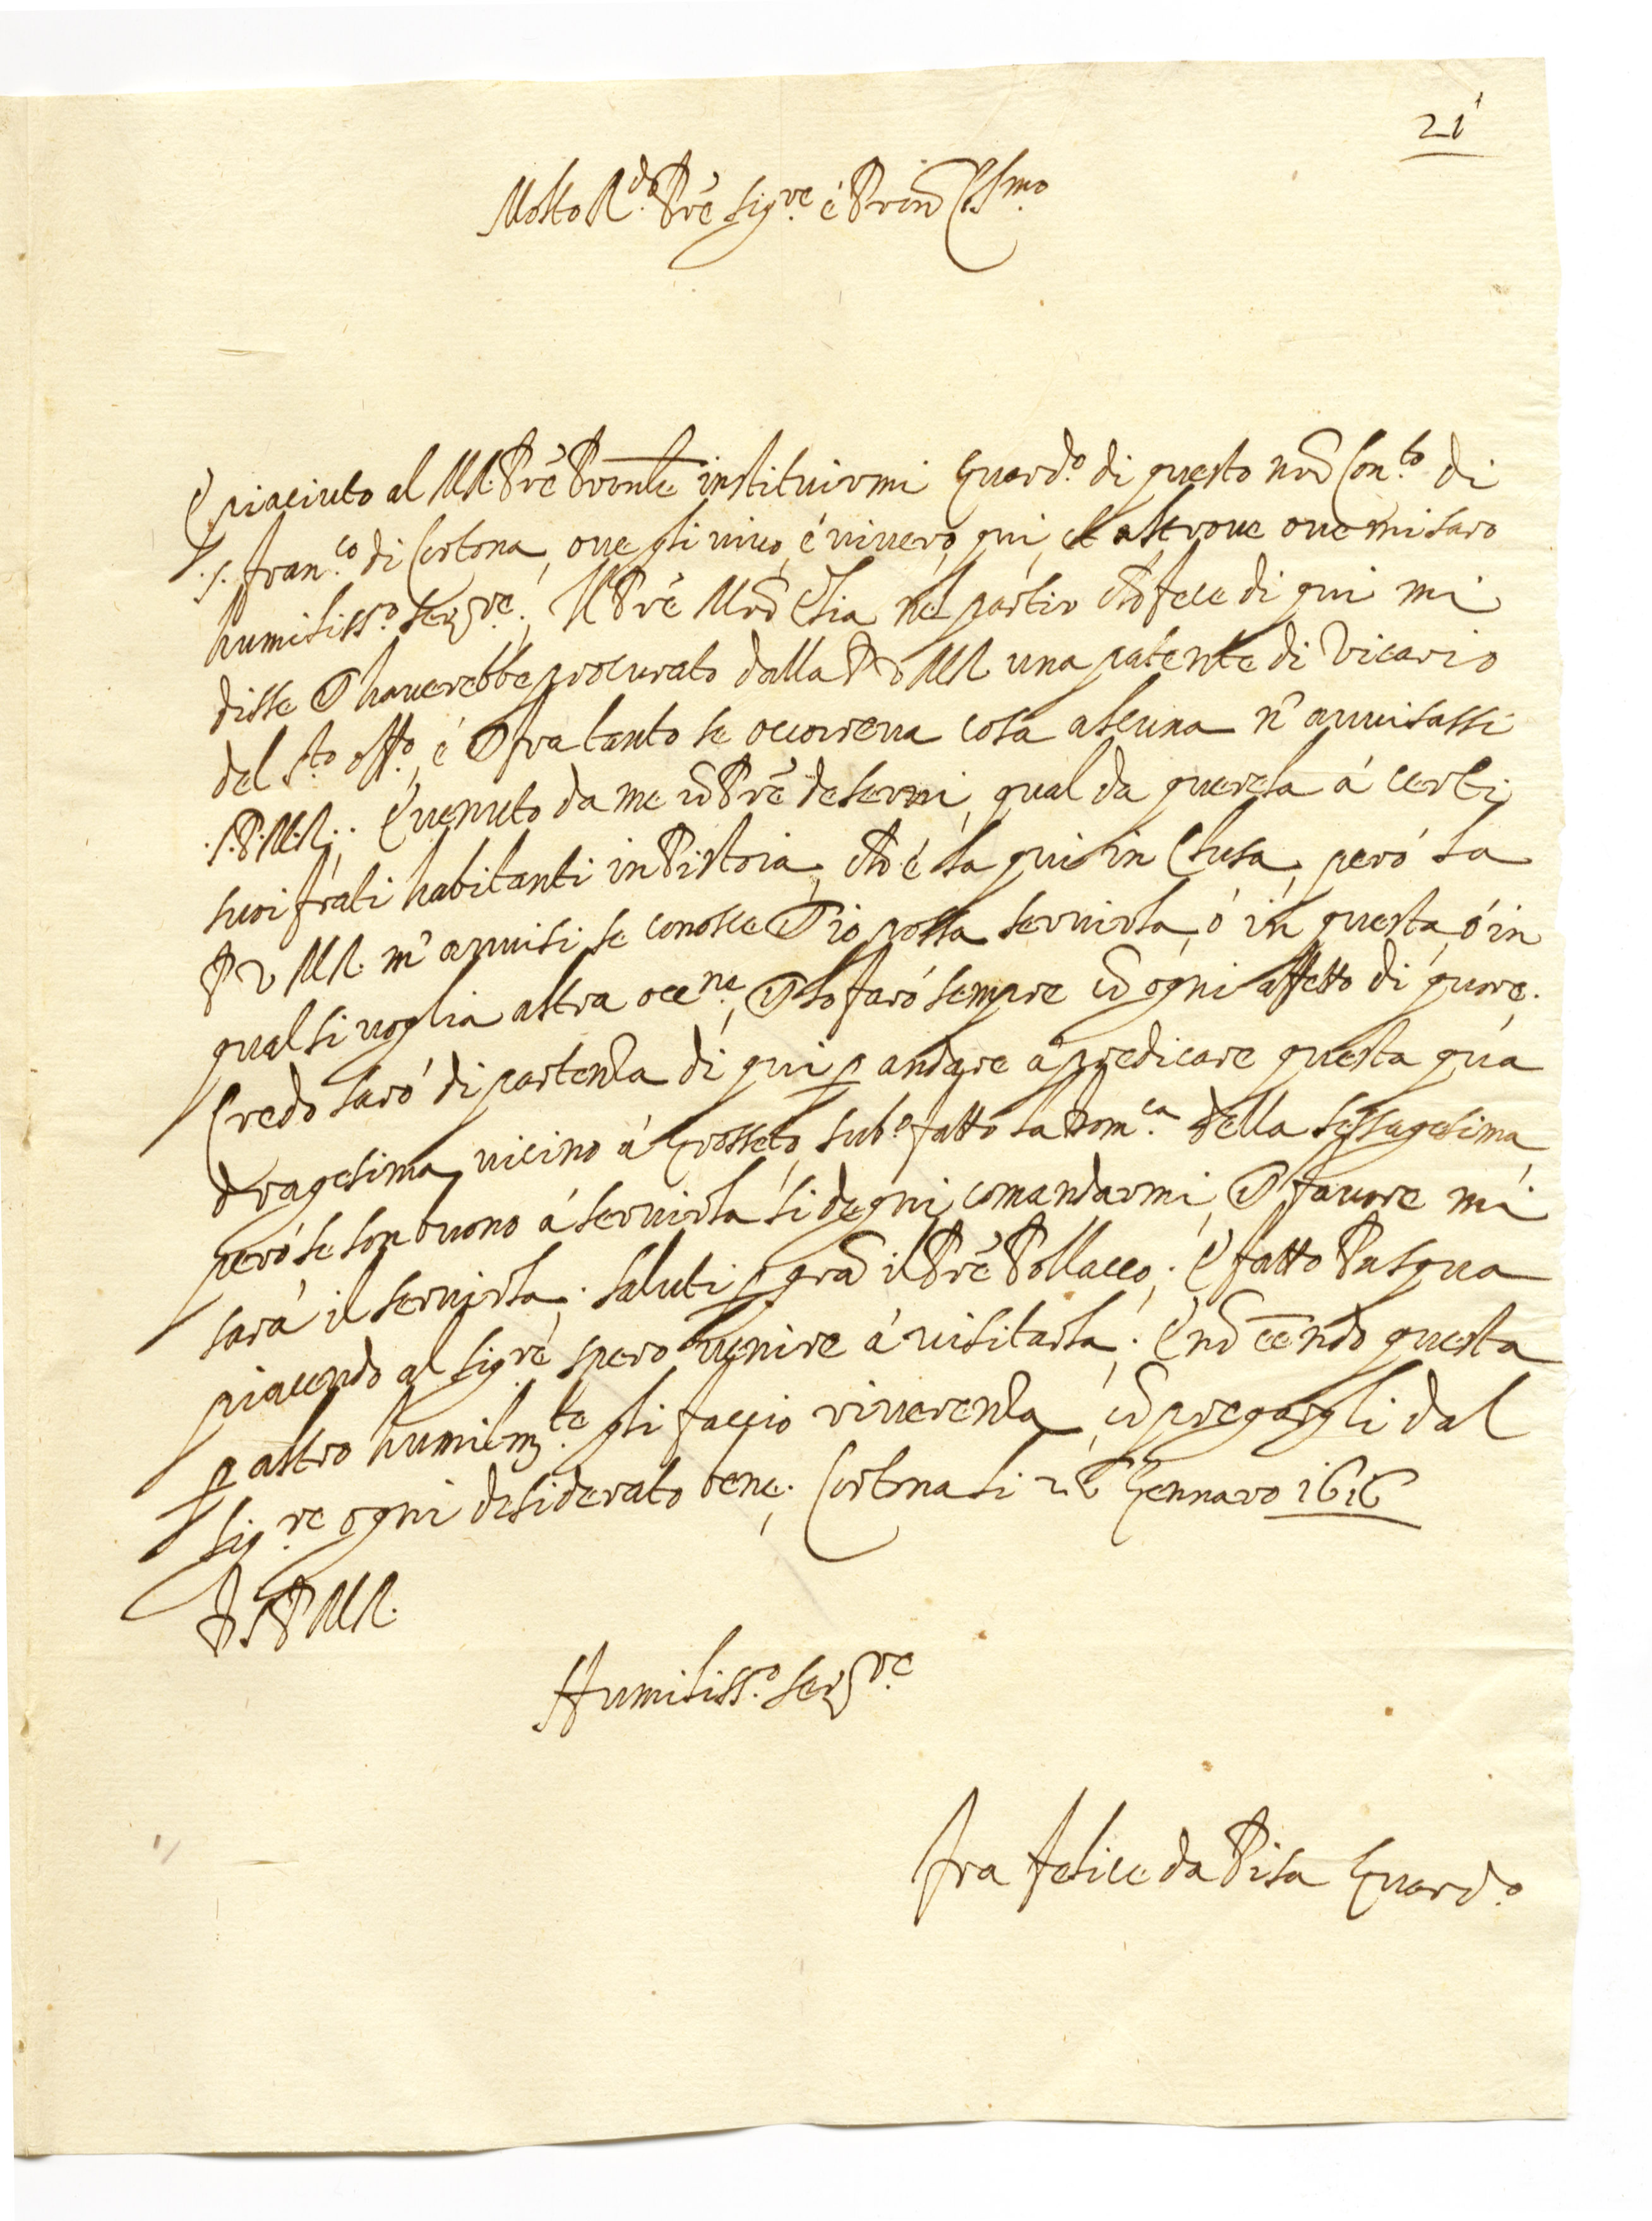 21
Molto R.do Pre̅ Sig.re è Pron̅ Oss.mo
È piaciuto al M.R. Pre̅ Pron̅le instituirmi Guard.o di questo nr̅o Con.to di
S. Fran.co di Cortona, oue gli uiuo, è uiuerò, qui, et altroue oue mi sarò
humiliss.o Ser.re; Il Pre̅ Mr̅o Elia nel partir che̅ fece di qui mi
disse che hauerebbe procurato dalla P V M R una patente di Vicario
del S.to Off.o, è che fra tanto se occorreua cosa alcuna n' auuisassi
S. P. M. R.; È uenuto da me un̅ Pre̅ de Serui, qual da querela à certi
suoi frati habitanti in Pistoia, che̅ è la qui in Clusa, però la
P V M R. m' auuisi se conosce che io possa seruirla, ò in questa, ò in
qual si uoglia altra occ.ne, che lo farò sempre co̅ ogni affetto di quore.
Credo sarò di partenza di qui p andare à predicare questa qua
dragesima uicino à Grosseto, sub.o fatto la Dom.ca della Sessagesima
però se son buono à seruirla si degni comandarmi, che fauore mi
sarà il seruirla. Saluti p gra̅ il Pre̅ Pollacco; È fatto Pasqua
piacendo al Sig.re spero uenire à uisitarla. È no̅ ee̅ndo questa
p altro humilm.te gli faccio riuerenza, co̅ pregargli dal
Sig.re ogni desiderato bene. Cortona li 26 Gennaro 1616
D S P M R.
Humiliss.o Ser.re
Fra Felice da Pisa Guard.o